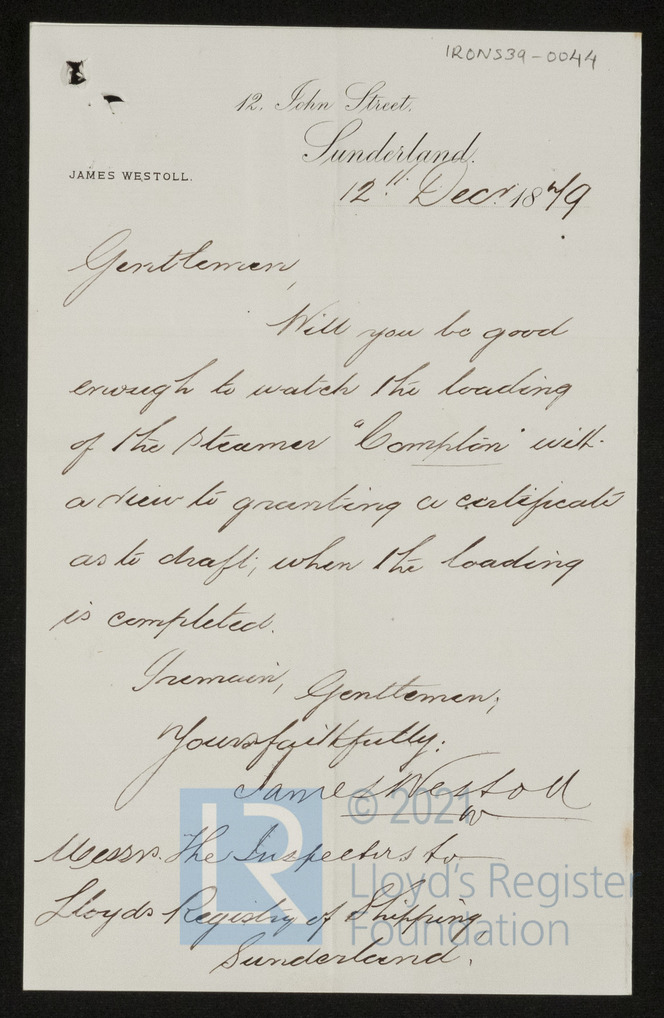 IRONS39-0044
12, John Street,
Sunderland.
JAMES WESTOLL.
12th Decr. 1879
Gentlemen,
Will you be good
enough to watch the loading
of the steamer "Compton" with
a view to granting a certificate
as to draft, when the loading
is completed.
I remain, Gentlemen,
Yours faithfully,
James Westoll
Messrs. The Inspectors to
Lloyds Registry of Shipping,
Sunderland.
LR
© 2021
Lloyd's Register
Foundation